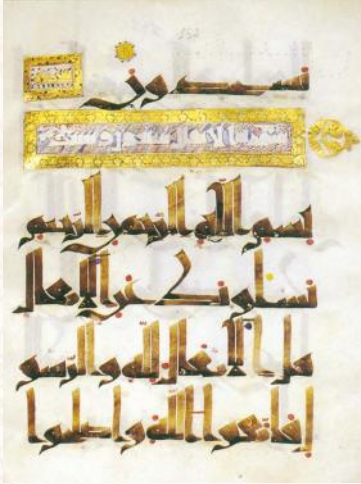 يسجدون
الانفال سبعون
بسم الله الرحمن الرحيم
يسلونك عن الانفال
قل الانفال لله والرسو
ل فاتقوا الله واصلحوا